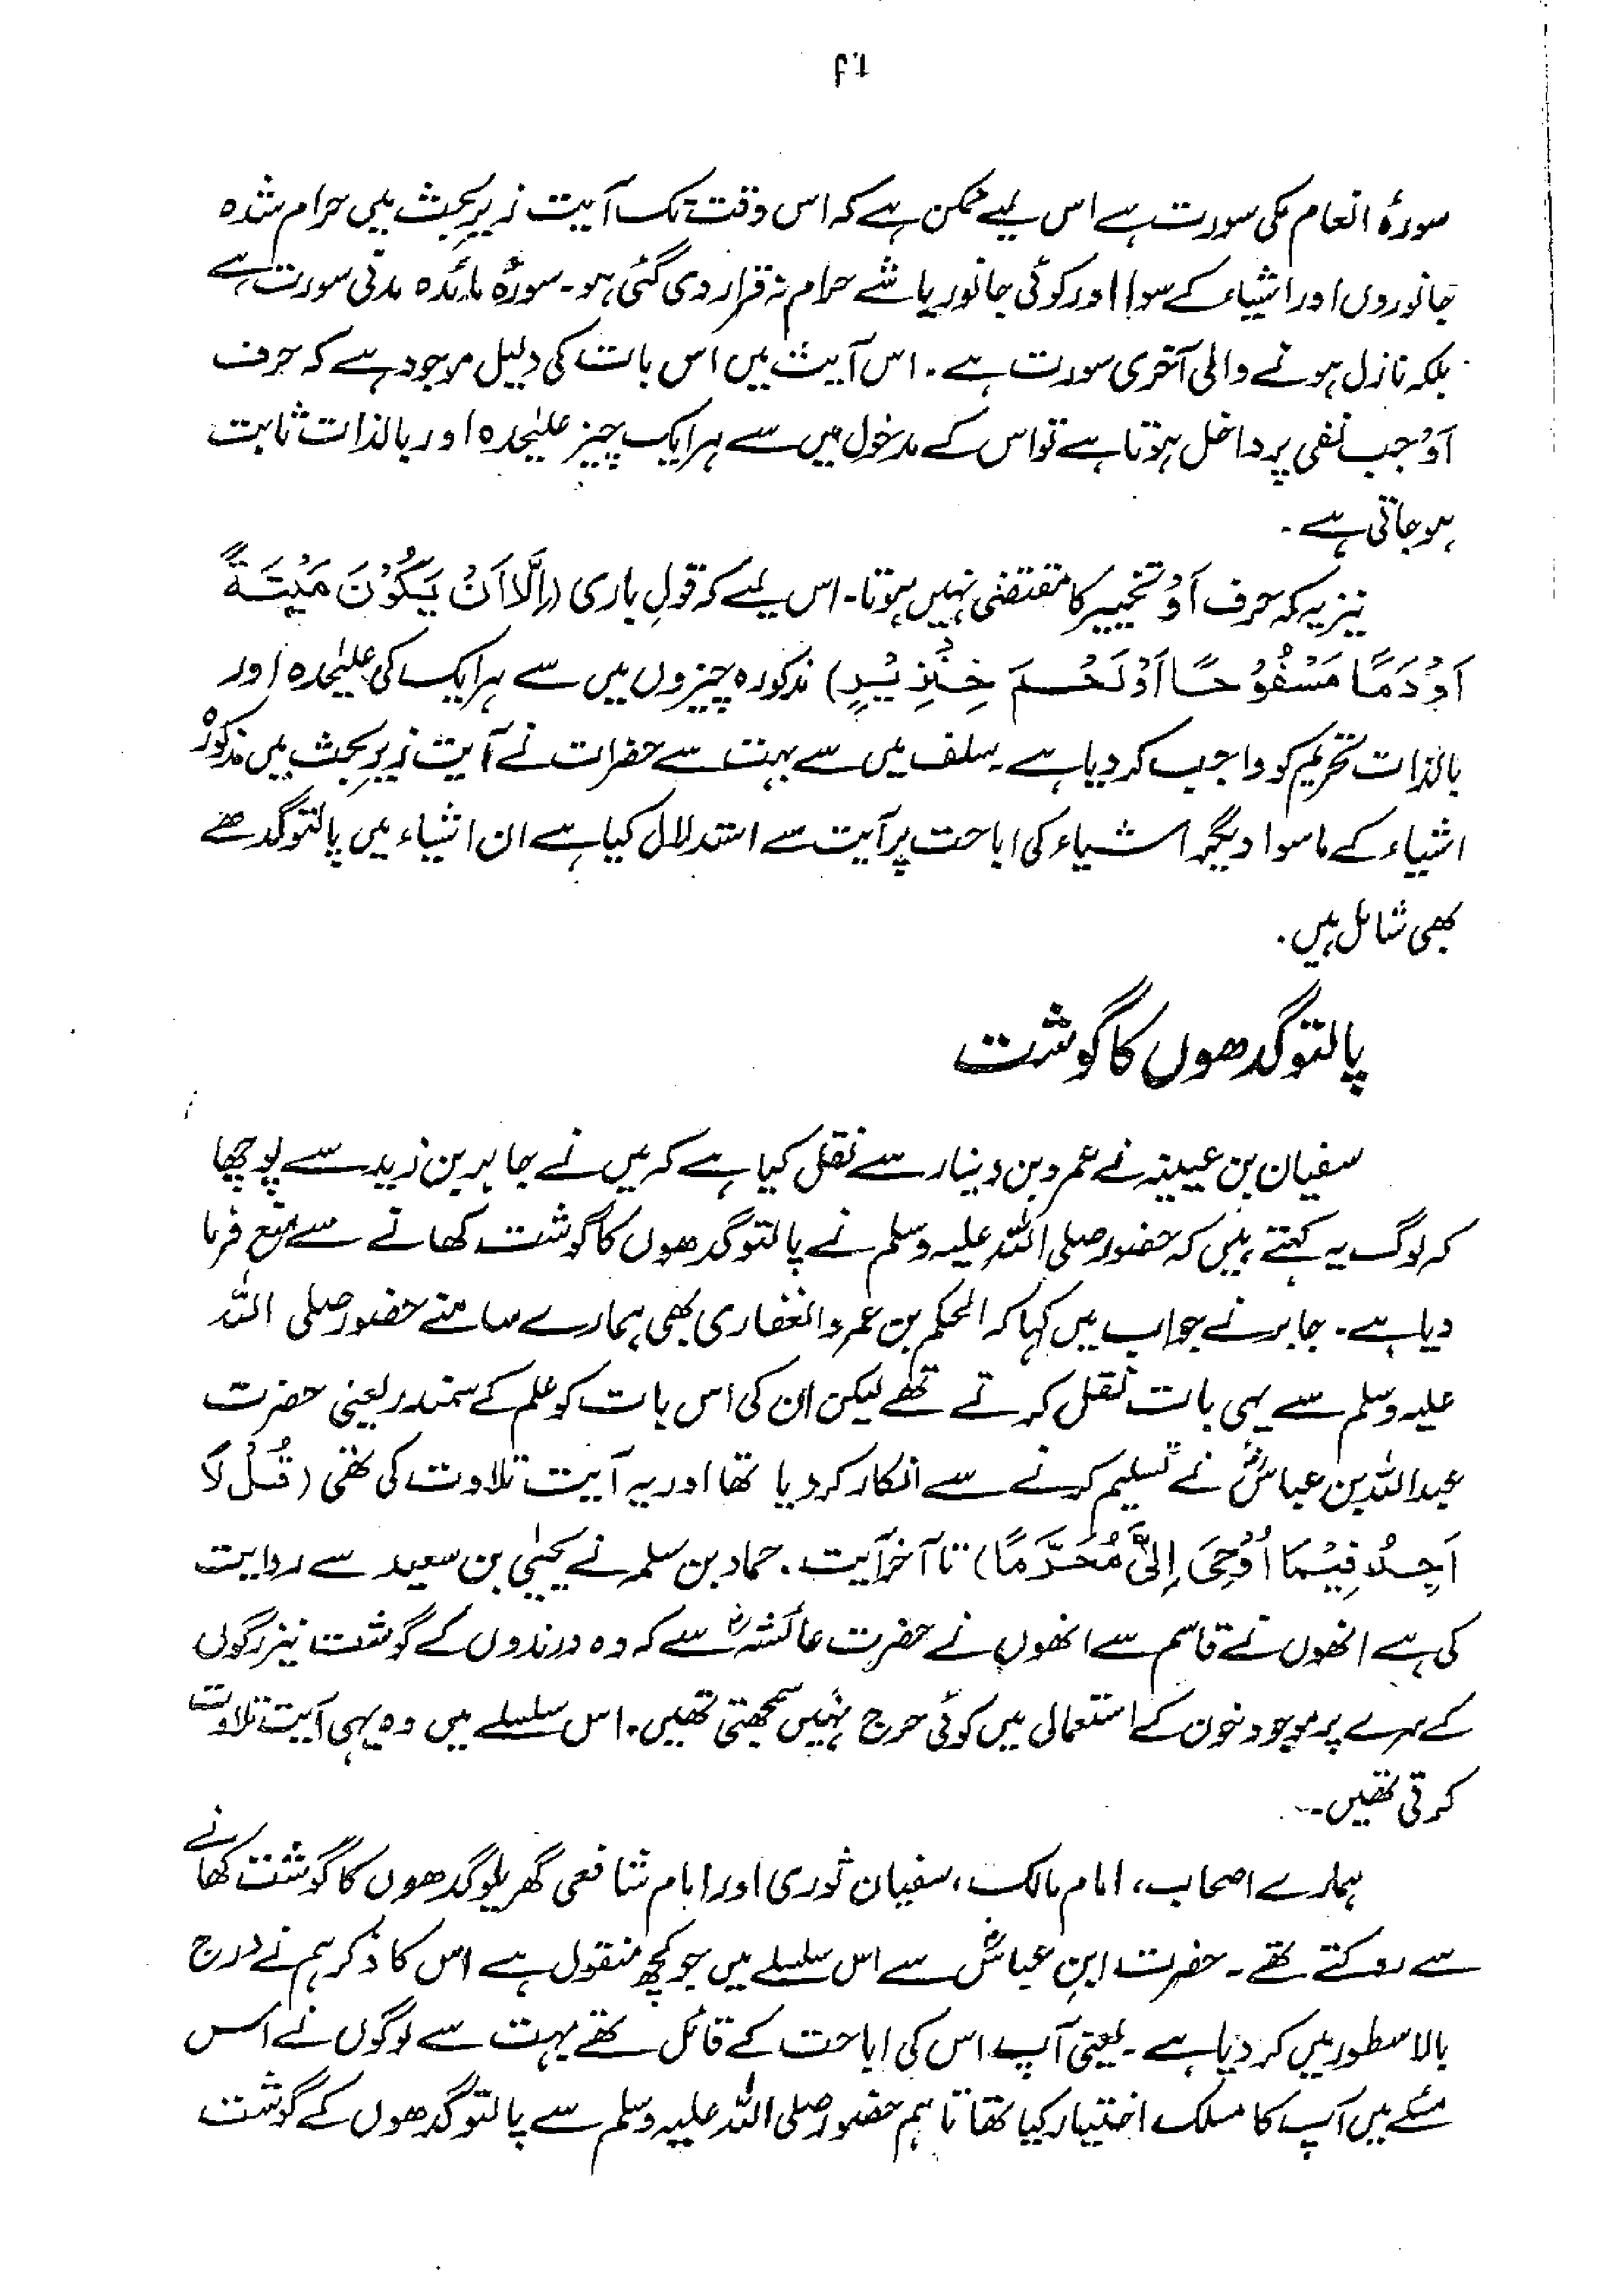 سورۂ انعام مکی سورت ہے اس لیے ممکن ہے کہ اس وقت تک آیت زیر بحث میں حرام شدہ
جانوروں اور اشیاء کے سوا اور کوئی جانور یا شے حرام نہ قرار دی گئی ہو۔ سورۂ مائدہ مدنی سورت ہے
بلکہ نازل ہونے والی آخری سورت ہے۔ اس آیت میں اس بات کی دلیل موجود ہے کہ حرف
اَوْ جب نفی پر داخل ہوتا ہے تو اس کے مدخول میں سے ہر ایک چیز علیٰحدہ اور بالذات ثابت
ہو جاتی ہے۔
نیز یہ کہ حرف اَوْ تخییر کا مقتضی نہیں ہوتا۔ اس لیے کہ قولِ باری (اِلَّا اَنْ يَكُوْنَ مَيْتَةً
اَوْ دَمًا مَسْفُوْحًا اَوْ لَحْمَ خِنْزِيْرٍ) مذکورہ چیزوں میں سے ہر ایک کی علیٰحدہ اور
بالذات تحریم کو واجب کر دیا ہے۔ سلف میں سے بہت سے حضرات نے آیت زیر بحث میں مذکورہ
اشیاء کے ماسوا دیگر اشیاء کی اباحت پر آیت سے استدلال کیا ہے ان اشیاء میں پالتو گدھے
بھی شامل ہیں۔
پالتو گدھوں کا گوشت
سفیان بن عیینہ نے عمرو بن دینار سے نقل کیا ہے کہ میں نے جابر بن زید سے پوچھا
کہ لوگ یہ کہتے ہیں کہ حضور صلی اللہ علیہ وسلم نے پالتو گدھوں کا گوشت کھانے سے منع فرما
دیا ہے۔ جابر نے جواب میں کہا کہ الحکم بن عمرو الغفاری بھی ہمارے سامنے حضور صلی اللہ
علیہ وسلم سے یہی بات نقل کرتے تھے لیکن ان کی اس بات کو علم کے سمندر یعنی حضرت
عبداللہ بن عباسؓ نے تسلیم کرنے سے انکار کر دیا تھا اور یہ آیت تلاوت کی تھی (قُلْ لَا
اَجِدُ فِيْمَا اُوْحِيَ اِلَيَّ مُحَرَّمًا) تا آخر آیت۔ حماد بن سلمہ نے یحیٰی بن سعید سے روایت
کی ہے انھوں نے قاسم سے انھوں نے حضرت عائشہؓ سے کہ وہ درندوں کے گوشت نیز رگوں
کے سرے پر موجود خون کے استعمال میں کوئی حرج نہیں سمجھتی تھیں۔ اس سلسلے میں وہ یہی آیت تلاوت
کرتی تھیں۔
ہمارے اصحاب، امام مالک، سفیان ثوری اور امام شافعی گھریلو گدھوں کا گوشت کھانے
سے روکتے تھے۔ حضرت ابنِ عباسؓ سے اس سلسلے میں جو کچھ منقول ہے اس کا ذکر ہم نے درج
بالا سطور میں کر دیا ہے۔ یعنی آپ اس کی اباحت کے قائل تھے بہت سے لوگوں نے اس
مسئلے میں آپ کا مسلک اختیار کیا تھا تاہم حضور صلی اللہ علیہ وسلم سے پالتو گدھوں کے گوشت